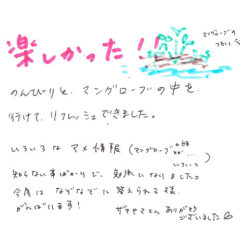 楽しかった!!
マングローブの
つもり
のんびりと、マングローブの中を
行けて、リフレッシュできました。
いろいろな マメ情報(マングローブの話
など…
いろいろ)
知らない事ばかりで、勉強になりました。
今度は なぞなぞに 答えられる様、
がんばります!
ありがとう
ございました